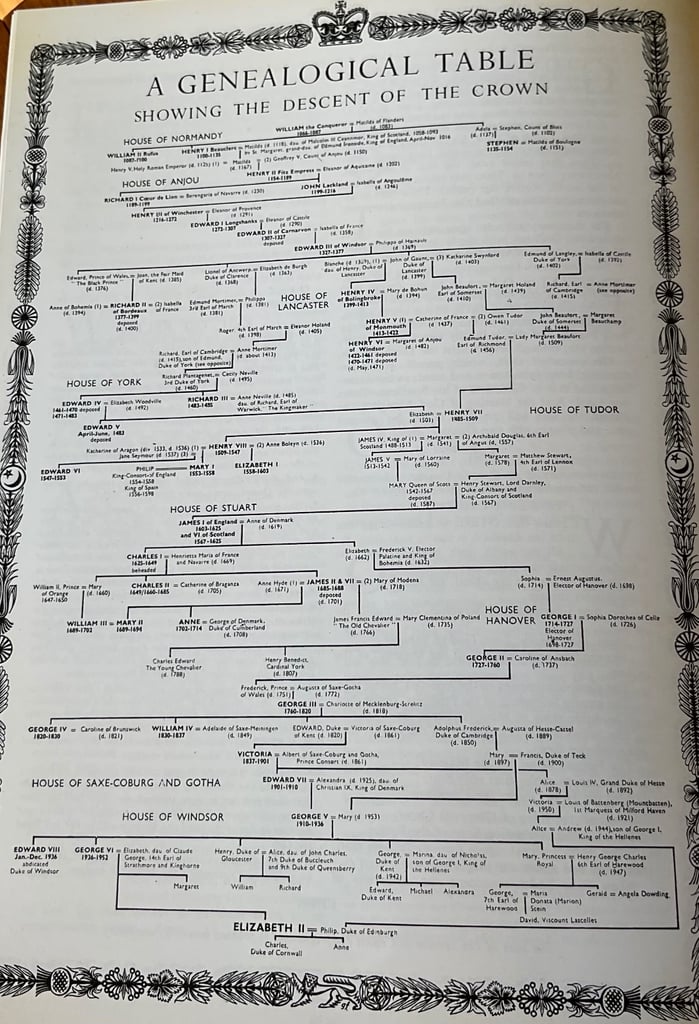 A GENEALOGICAL TABLE
SHOWING THE DESCENT OF THE CROWN
WILLIAM the Conqueror = Matilda of Flanders
1066-1087 (d. 1083)
HOUSE OF NORMANDY
WILLIAM II Rufus
1087-1100
HENRY I Beauclerc = Matilda (d. 1118), dau. of Malcolm III Ceannmor, King of Scotland, 1058-1093
1100-1135 by St. Margaret, grand-dau. of Edmund Ironside, King of England, April-Nov. 1016
Adela = Stephen, Count of Blois
(d. 1137) (d. 1102)
STEPHEN = Matilda of Boulogne
1135-1154 (d. 1151)
Henry V, Holy Roman Emperor (d. 1125) (1) = Matilda = (2) Geoffrey V, Count of Anjou (d. 1150)
(d. 1167)
HENRY II Fitz Empress = Eleanor of Aquitaine (d. 1202)
1154-1189
HOUSE OF ANJOU
RICHARD I Cœur de Lion = Berengaria of Navarre (d. 1230)
1189-1199
JOHN Lackland = Isabella of Angoulême
1199-1216 (d. 1246)
HENRY III of Winchester = Eleanor of Provence
1216-1272 (d. 1291)
EDWARD I Longshanks = Eleanor of Castile
1272-1307 (d. 1290)
EDWARD II of Carnarvon = Isabella of France
1307-1327 (d. 1358)
deposed
EDWARD III of Windsor = Philippa of Hainault
1327-1377 (d. 1369)
Edward, Prince of Wales, = Joan, the Fair Maid
"The Black Prince" of Kent (d. 1385)
(d. 1376)
Lionel of Antwerp, = Elizabeth de Burgh
Duke of Clarence (d. 1363)
(d. 1368)
Blanche (d. 1369), (1) = John of Gaunt, = (3) Katharine Swynford
dau. of Henry, Duke of Duke of (d. 1403)
Lancaster Lancaster
(d. 1399)
Edmund of Langley, = Isabella of Castile
Duke of York (d. 1392)
(d. 1402)
Anne of Bohemia (1) = RICHARD II = (2) Isabella
(d. 1394) of Bordeaux of France
1377-1399
deposed
(d. 1400)
Edmund Mortimer, = Philippa
3rd Earl of March (d. 1381)
(d. 1381)
HOUSE OF
LANCASTER
HENRY IV = Mary de Bohun
of Bolingbroke (d. 1394)
1399-1413
John Beaufort, = Margaret Holand
Earl of Somerset (d. 1439)
(d. 1410)
Richard, Earl = Anne Mortimer
of Cambridge (see opposite)
(d. 1415)
Roger, 4th Earl of March = Eleanor Holand
(d. 1398) (d. 1405)
HENRY V (1) = Catherine of France = (2) Owen Tudor
of Monmouth (d. 1437) (d. 1461)
1413-1422
John Beaufort, = Margaret
Duke of Somerset Beauchamp
(d. 1444)
Richard, Earl of Cambridge = Anne Mortimer
(d. 1415), son of Edmund, (d. about 1413)
Duke of York (see opposite)
HENRY VI = Margaret of Anjou
of Windsor (d. 1482)
1422-1461 deposed
1470-1471 deposed
(d. May, 1471)
Edmund Tudor, = Lady Margaret Beaufort
Earl of Richmond (d. 1509)
(d. 1456)
Richard Plantagenet, = Cecily Neville
3rd Duke of York (d. 1495)
(d. 1460)
HOUSE OF YORK
EDWARD IV = Elizabeth Woodville
1461-1470 deposed (d. 1492)
1471-1483
RICHARD III = Anne Neville (d. 1485)
1483-1485 dau. of Richard, Earl of
Warwick, "The Kingmaker"
Elizabeth = HENRY VII
(d. 1503) 1485-1509
HOUSE OF TUDOR
EDWARD V
April-June, 1483
deposed
Katharine of Aragon (div. 1533, d. 1536) (1) = HENRY VIII = (2) Anne Boleyn (d. 1536)
Jane Seymour (d. 1537) (3) = 1509-1547
JAMES IV, King of (1) = Margaret = (2) Archibald Douglas, 6th Earl
Scotland 1488-1513 (d. 1541) of Angus (d. 1557)
EDWARD VI
1547-1553
PHILIP = MARY I
King-Consort of England 1553-1558
1554-1558
King of Spain
1556-1598
ELIZABETH I
1558-1603
JAMES V = Mary of Lorraine
1513-1542 (d. 1560)
Margaret = Matthew Stewart,
(d. 1578) 4th Earl of Lennox
(d. 1571)
MARY Queen of Scots = Henry Stewart, Lord Darnley,
1542-1567 Duke of Albany and
deposed King-Consort of Scotland
(d. 1587) (d. 1567)
HOUSE OF STUART
JAMES I of England = Anne of Denmark
1603-1625 (d. 1619)
and VI of Scotland
1567-1625
CHARLES I = Henrietta Maria of France
1625-1649 and Navarre (d. 1669)
beheaded
Elizabeth = Frederick V, Elector
(d. 1662) Palatine and King of
Bohemia (d. 1632)
William II, Prince = Mary
of Orange (d. 1660)
1647-1650
CHARLES II = Catherine of Braganza
1649/1660-1685 (d. 1705)
Anne Hyde (1) = JAMES II & VII = (2) Mary of Modena
(d. 1671) 1685-1688 (d. 1718)
deposed
(d. 1701)
Sophia = Ernest Augustus,
(d. 1714) Elector of Hanover (d. 1698)
WILLIAM III = MARY II
1689-1702 1689-1694
ANNE = George of Denmark,
1702-1714 Duke of Cumberland
(d. 1708)
James Francis Edward = Mary Clementina of Poland
"The Old Chevalier" (d. 1735)
(d. 1766)
HOUSE OF
HANOVER
GEORGE I = Sophia Dorothea of Celle
1714-1727 (d. 1726)
Elector of
Hanover
1698-1727
Charles Edward
The Young Chevalier
(d. 1788)
Henry Benedict,
Cardinal York
(d. 1807)
GEORGE II = Caroline of Ansbach
1727-1760 (d. 1737)
Frederick, Prince = Augusta of Saxe-Gotha
of Wales (d. 1751) (d. 1772)
GEORGE III = Charlotte of Mecklenburg-Strelitz
1760-1820 (d. 1818)
GEORGE IV = Caroline of Brunswick
1820-1830 (d. 1821)
WILLIAM IV = Adelaide of Saxe-Meiningen
1830-1837 (d. 1849)
EDWARD, Duke = Victoria of Saxe-Coburg
of Kent (d. 1820) (d. 1861)
Adolphus Frederick, = Augusta of Hesse-Cassel
Duke of Cambridge (d. 1889)
(d. 1850)
VICTORIA = Albert of Saxe-Coburg and Gotha,
1837-1901 Prince Consort (d. 1861)
Mary = Francis, Duke of Teck
(d. 1897) (d. 1900)
HOUSE OF SAXE-COBURG AND GOTHA
EDWARD VII = Alexandra (d. 1925), dau. of
1901-1910 Christian IX, King of Denmark
Alice = Louis IV, Grand Duke of Hesse
(d. 1878) (d. 1892)
Victoria = Louis of Battenberg (Mountbatten),
(d. 1950) 1st Marquess of Milford Haven
(d. 1921)
HOUSE OF WINDSOR
GEORGE V = Mary (d. 1953)
1910-1936
Alice = Andrew (d. 1944), son of George I,
King of the Hellenes
EDWARD VIII
Jan.-Dec. 1936
abdicated
Duke of Windsor
GEORGE VI = Elizabeth, dau. of Claude
1936-1952 George, 14th Earl of
Strathmore and Kinghorne
Henry, Duke of = Alice, dau. of John Charles,
Gloucester 7th Duke of Buccleuch
and 9th Duke of Queensberry
George, = Marina, dau. of Nicholas,
Duke of son of George I, King of
Kent the Hellenes
(d. 1942)
Mary, Princess = Henry George Charles
Royal 6th Earl of Harewood
(d. 1947)
Margaret
William Richard
Edward, Michael Alexandra
Duke of Kent
George, = Maria
7th Earl of Donata (Marion)
Harewood Stein
Gerald = Angela Dowding
David, Viscount Lascelles
ELIZABETH II = Philip, Duke of Edinburgh
Charles, Anne
Duke of Cornwall